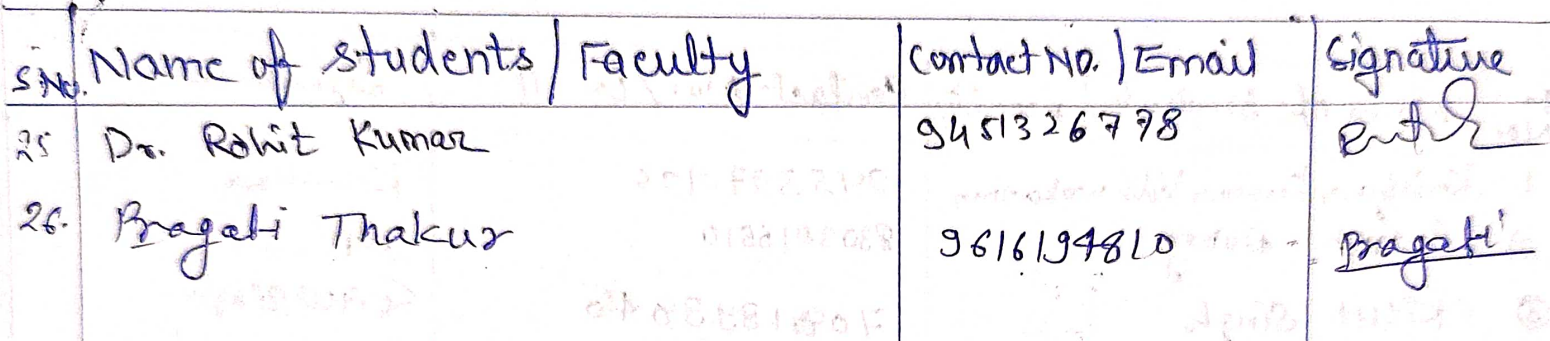 S.No. Name of students / Faculty Contact No. / Email Signature
25 Dr. Rohit Kumar 9451326778
26. Pragati Thakur 9616194810 Pragati